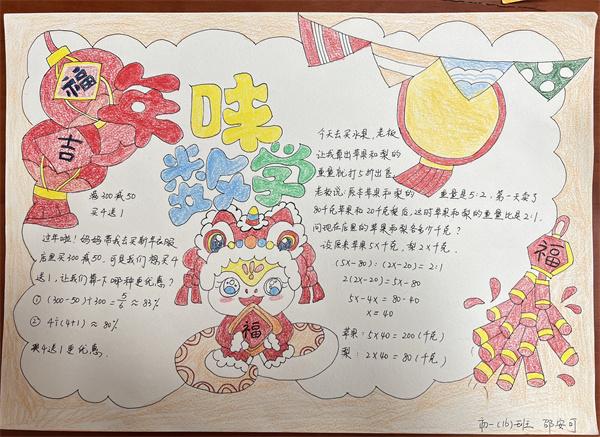 年味
数学
福
吉
满300减50
买4送1
过年啦！妈妈带我去买新年衣服
店里买300减50，可是我们想买4
送1，让我们算一下哪种更优惠？
① (300-50)÷300=5/6≈83%
② 4÷(4+1)≈80%
买4送1更优惠.
今天去买水果，老板
让我算出苹果和梨的
重量就打5折出售
老板说：原本苹果和梨的重量是5:2，第一天卖了
80千克苹果和20千克梨后，这时苹果和梨的重量比是2:1.
问现在店里的苹果和梨各多少千克？
设原来苹果5X千克，梨2X千克.
(5X-80):(2X-20)=2:1
2(2X-20)=5X-80
5X-4X=80-40
X=40
苹果：5×40=200(千克)
梨：2×40=80(千克)
福
福
初一(16)班 邵安可